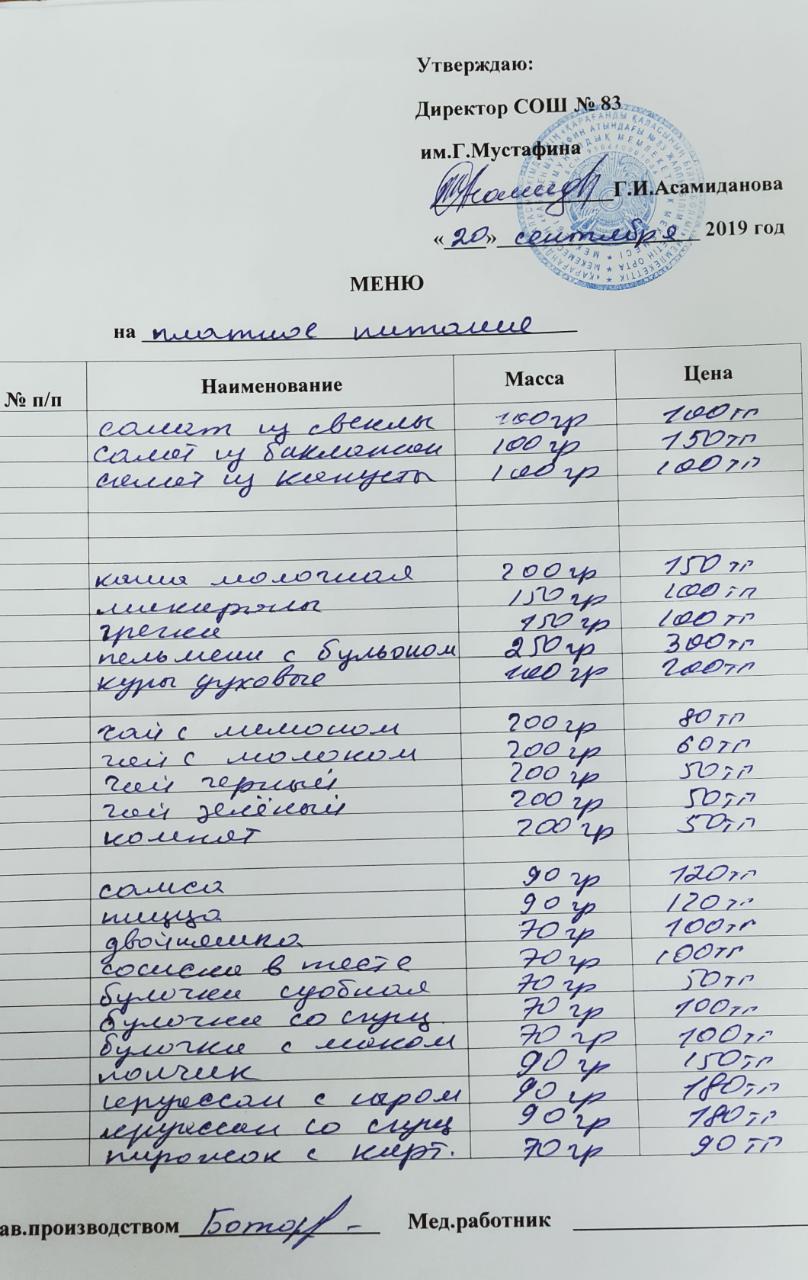 Утверждаю:
Директор СОШ № 83
им.Г.Мустафина
Г.И.Асамиданова
«20» сентября 2019 год
МЕНЮ
на платное питание
№ п/п Наименование Масса Цена
салат из свеклы 100гр 100тг
салат из баклажан 100гр 150тг
салат из капусты 100гр 100тг
каша молочная 200гр 150тг
макароны 150гр 100тг
гречка 150гр 100тг
пельмени с бульоном 250гр 300тг
куры духовые 100гр 200тг
чай с лимоном 200гр 80тг
чай с молоком 200гр 60тг
чай черный 200гр 50тг
чай зелёный 200гр 50тг
компот 200гр 50тг
самса 90гр 120тг
пицца 90гр 120тг
двойняшка 70гр 100тг
сосиска в тесте 70гр 100тг
булочка сдобная 70гр 50тг
булочка со сгущ 70гр 100тг
булочка с маком 70гр 100тг
пончик 90гр 150тг
круассан с сыром 90гр 180тг
круассан со сгущ 90гр 180тг
пирожок с карт. 70гр 90тг
ав.производством Мед.работник